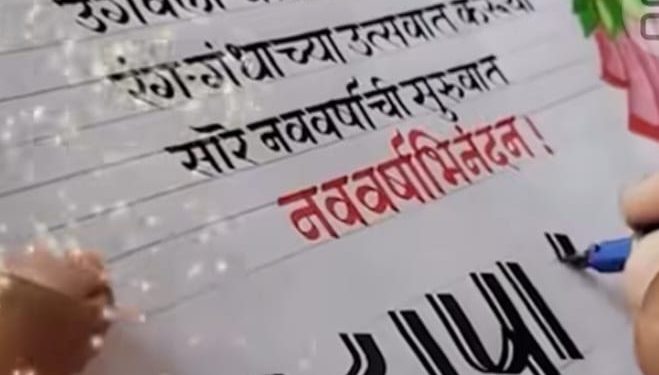 उगवली
रंग-गंधाच्या उत्सवात करूया
सारे नववर्षाची सुरुवात
नववर्षाभिनंदन!